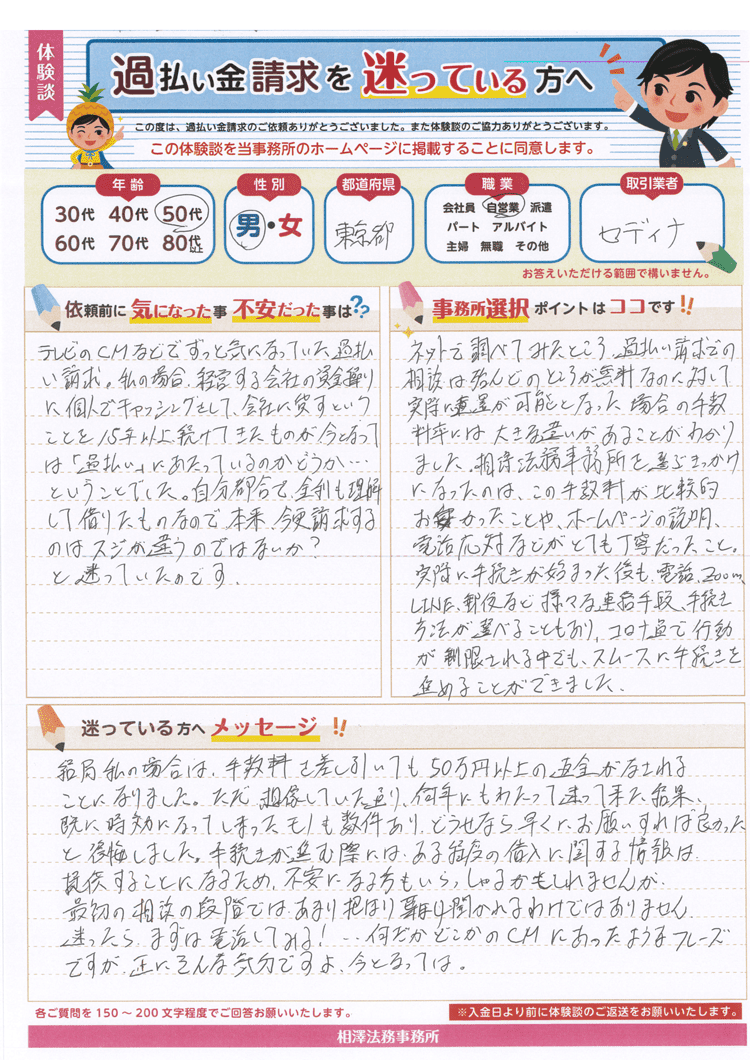 体験談
過払い金請求を迷っている方へ
この度は、過払い金請求のご依頼ありがとうございました。また体験談のご協力ありがとうございます。
この体験談を当事務所のホームページに掲載することに同意します。
年齢
30代 40代 50代
60代 70代 80代以上
性別
男・女
都道府県
東京都
職業
会社員 自営業 派遣
パート アルバイト
主婦 無職 その他
取引業者
セディナ
お答えいただける範囲で構いません。
依頼前に気になった事 不安だった事は??
テレビのCMなどでずっと気になっていた過払
い請求。私の場合、経営する会社の資金繰り
に個人でキャッシングをして、会社に貸すという
ことを15年以上続けてきたものが今となって
は「過払い」にあたっているのかどうか…
ということでした。自分都合で、金利も理解
して借りたものなので本来、今更請求する
のはスジが違うのではないか?
と迷っていたのです.
事務所選択ポイントはココです!!
ネットで調べてみたところ、過払い請求での
相談は殆んどのところが無料なのに対して
実際に返還が可能となった場合の手数
料率には大きな違いがあることがわかり
ました。相澤法務事務所を選ぶきっかけ
になったのは、この手数料が比較的
お安かったことや、ホームページの説明、
電話応対などがとても丁寧だったこと。
実際に手続きが始まった後も、電話、Zoom、
LINE、郵便など様々な連絡手段、手続き
方法が選べることもあり、コロナ渦で行動
が制限される中でも、スムースに手続きを
進めることができました.
迷っている方へメッセージ!!
結局私の場合は、手数料を差し引いても50万円以上の返金がなされる
ことになりました。ただ、想像していた通り、何年にもわたって迷って来た結果、
既に時効になってしまったモノも数件あり、どうせなら早くにお願いすれば良かった
と後悔しました。手続きが進む際には、ある程度の借入に関する情報は
提供することになるため、不安になる方もいらっしゃるかもしれませんが、
最初の相談の段階では、あまり根ほり葉ほり聞かれるわけではありません.
迷ったら、まずは電話してみる!…何だかどこかのCMにあったようなフレーズ
ですが、正にそんな気分ですよ、今となっては。
各ご質問を150～200文字程度でご回答お願いいたします。
※入金日より前に体験談のご返送をお願いいたします。
相澤法務事務所